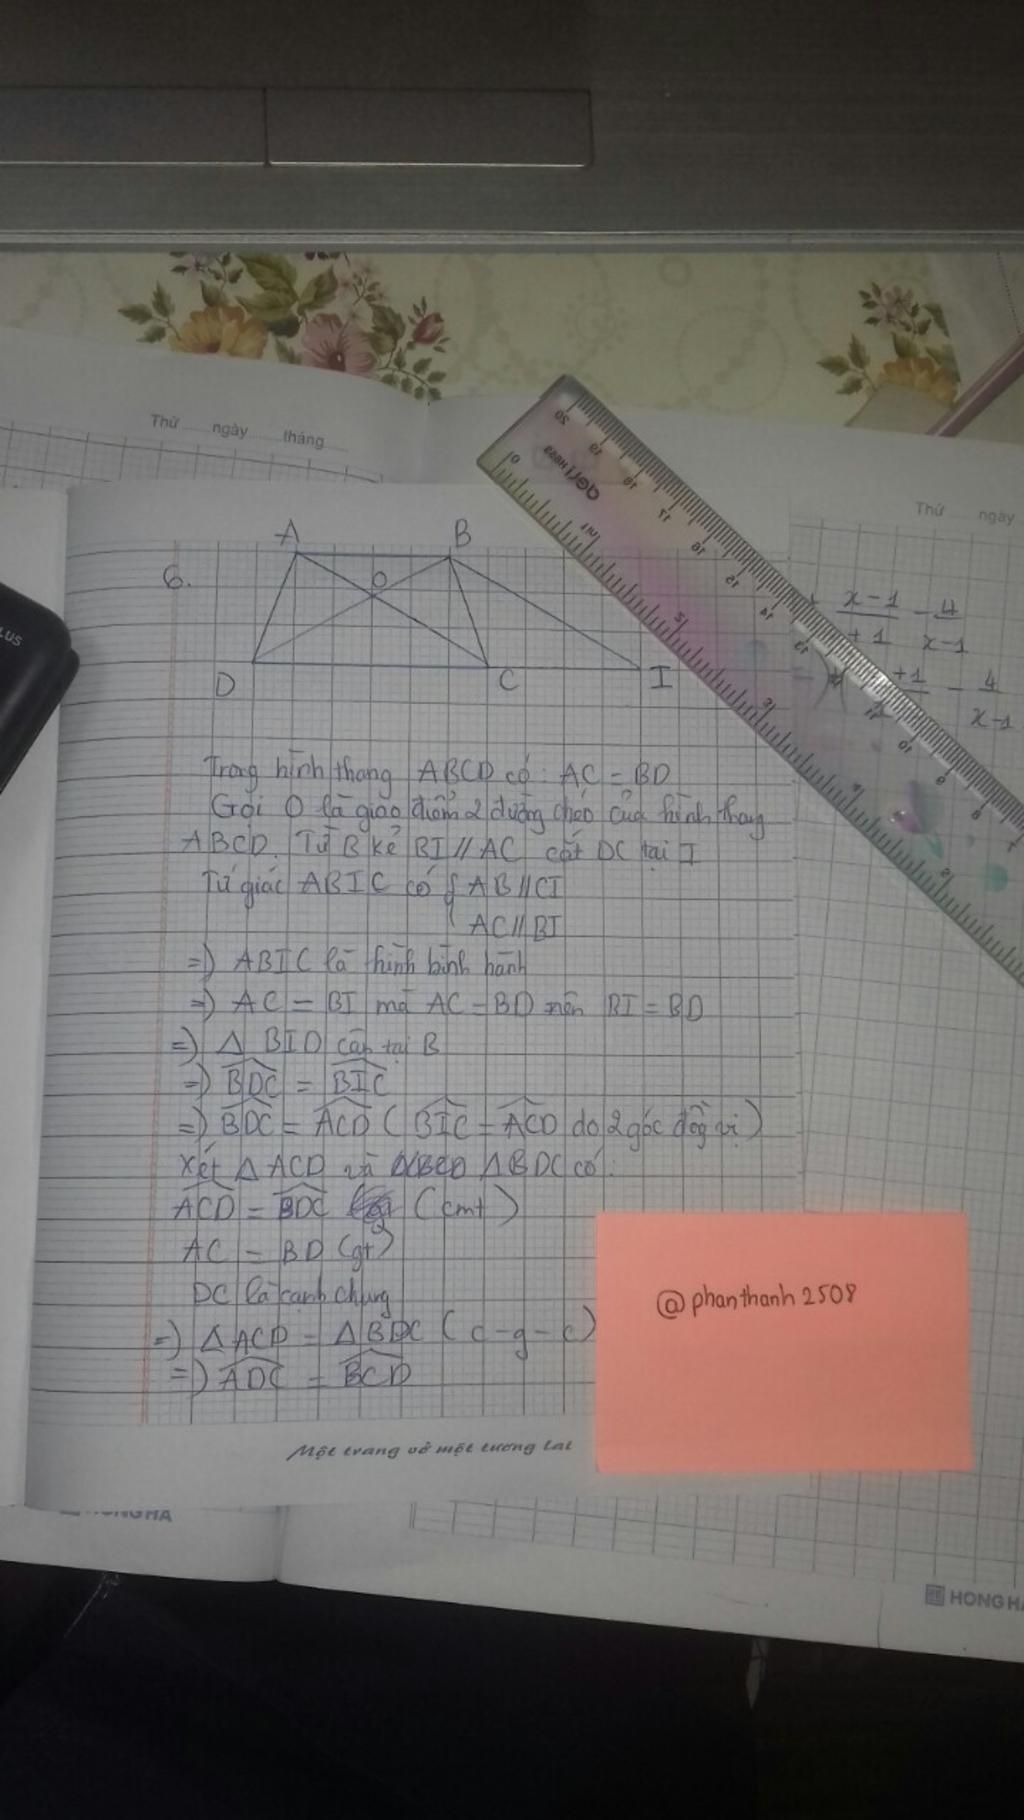 LUS
Thứ ngày tháng
Thứ ngày
deli
20 19 18 17 16 15 14 13
10 9 8 7
x-1 - 4
+1 x-1
+1 - 4
x-1
6.
A B
O
D C I
Trong hình thang ABCD có: AC = BD
Gọi O là giao điểm 2 đường chéo của hình thang
ABCD. Từ B kẻ BI // AC cắt DC tại I
Tứ giác ABIC có { AB // CI
AC // BI
=) ABIC là hình bình hành
=) AC = BI mà AC = BD nên BI = BD
=) Δ BID cân tại B
=) BDC = BIC
=) BDC = ACD ( BIC = ACD do 2 góc đồng vị )
Xét Δ ACD và Δ BDC có:
ACD = BDC (cmt)
AC = BD (gt)
DC là cạnh chung
=) Δ ACD = Δ BDC ( c - g - c )
=) ADC = BCD
@phanthanh2508
Một trang vở một tương lai
HONG HA
HONG HA